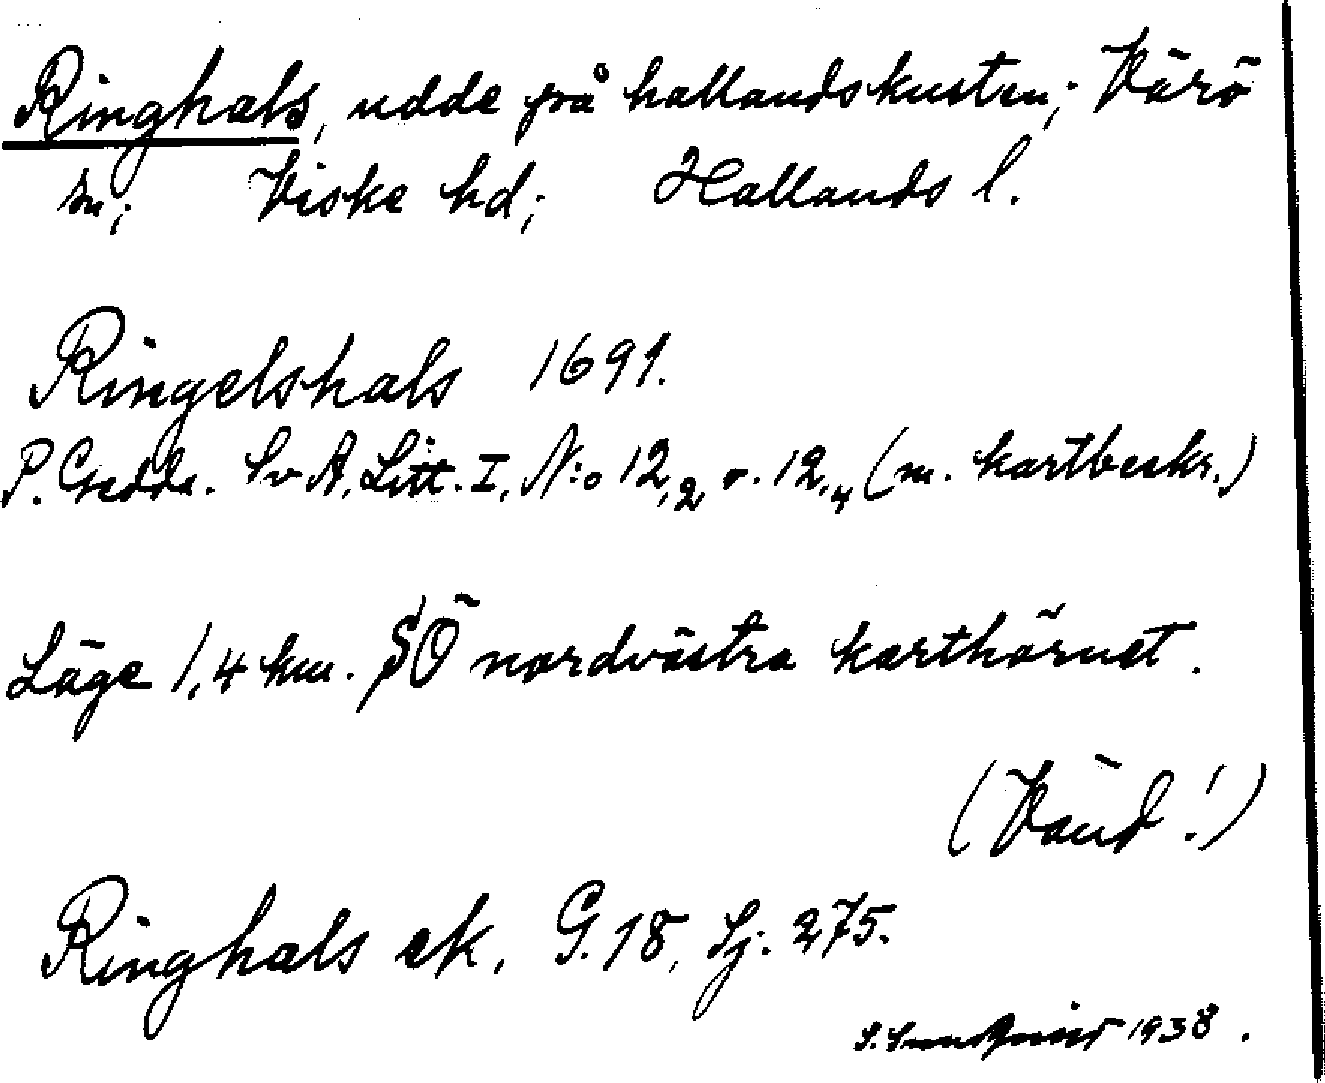 Ringhals, udde på hallandskusten; Värö
sn; Viske hd; Hallands l.
Ringelshals 1691.
P. Gedda. Sv A. Litt. I, N:o 12,2, o. 12,4 (m. kartbeskr.)
Läge 1,4 km. SÖ nordvästra karthörnet.
(Vänd!)
Ringhals ek. G. 18, Sj. 275.
1938.